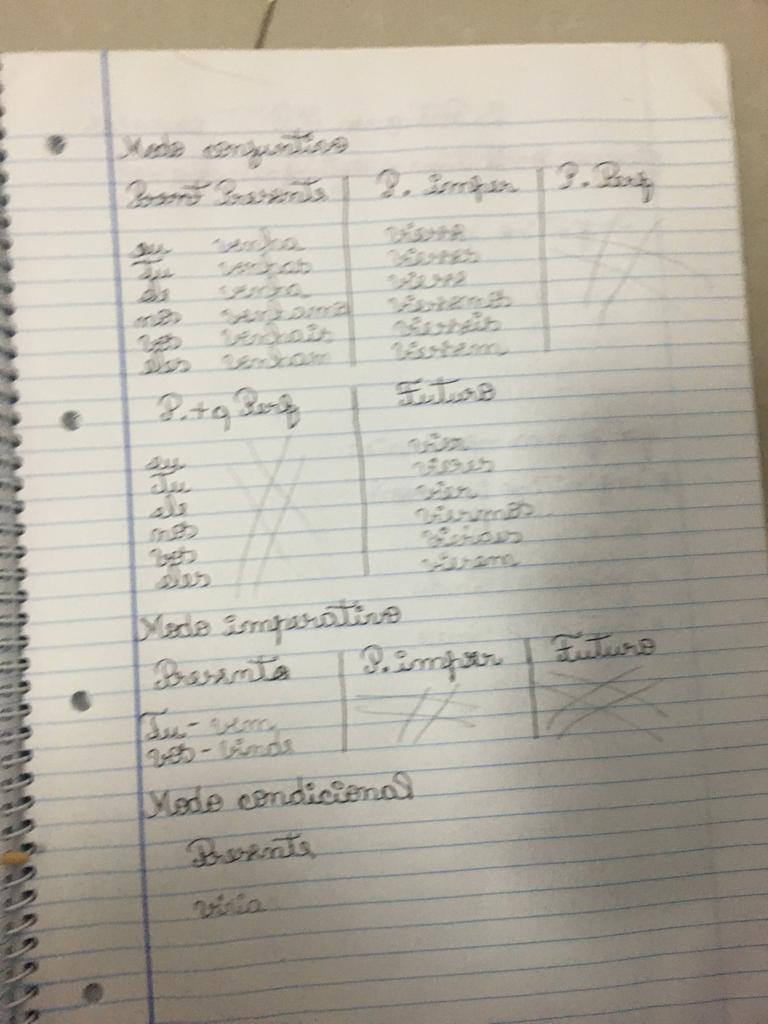 Modo conjuntivo
Presente P. imper P. Perf
eu venha viesse
Tu venhas viesses
ele venha viesse
nós venhamos viessemos
vós venhais viesseis
eles venham viessem
P. +q Perf Futuro
eu vier
Tu vieres
ele vier
nós viermos
vós
eles vierem
Modo imperativo
Presente P. imper Futuro
Tu - vem
vós - vinde
Modo condicional
Presente
viria